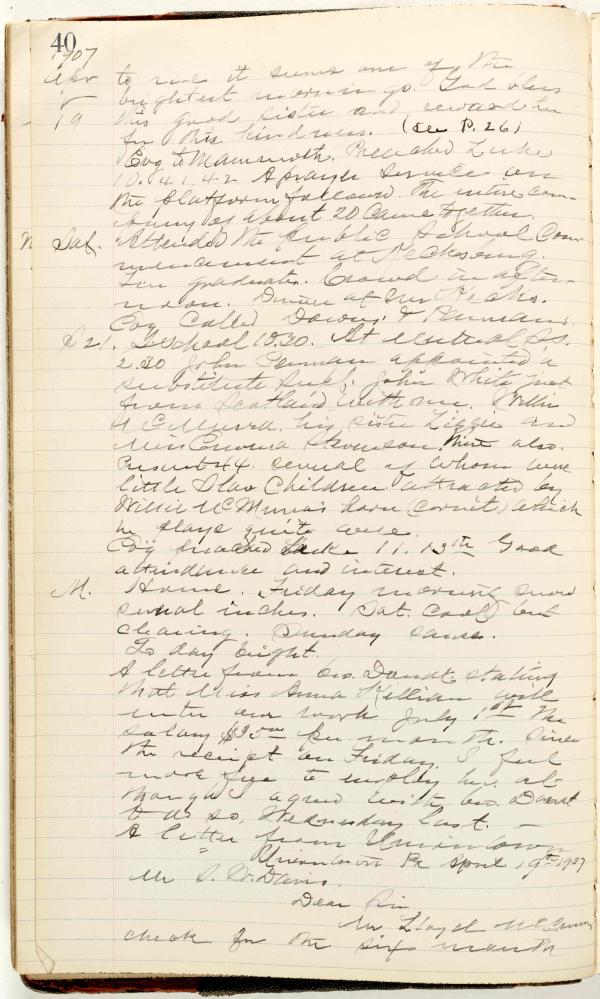 40
1907
Apr to me it seems one of the
brightest mornings. God bless
19 this good sister and reward her
for this kindness. (see P. 26)
Evg to Mammoth. Preached Luke
10. 41. 42 A prayer service on
the platform followed. The entire com-
pany of about 20 came together.
Sat. Attended the public School Com-
mencement at Hecksburg.
graduates. Crowd in after-
noon. Dinner at Mrs Hecks.
Evg called Downs. & Penmans.
S 21. S. School 10.30. At Mutual S.S.
2.30 John Penman appointed a
substitute Supt. John White just
from Scotland with me. Willie
McMurra his sister Lizzie and
Miss Emma Stevenson also.
Present 44. several of whom were
little Slav Children attracted by
Willie McMurras horn (cornet) which
he plays quite well.
Evg preached Luke 11. 13th Good
attendance and interest.
M. Home. Friday morning snow
several inches. Sat. cool but
clearing. Sunday same.
To day bright.
A letter from bro. Dandt stating
that Miss Anna Killian will
enter our work July 1st The
salary $35.00 per month. Since
the receipt on Friday. I feel
more free to employ her al-
though I agreed with bro. Dandt
to do so, Wednesday last. –
A letter from Uniontown
" Uniontown Pa April 19th 1907
Mr S. W. Davis.
Dear Sir
Mr. Lloyd
check for the six month